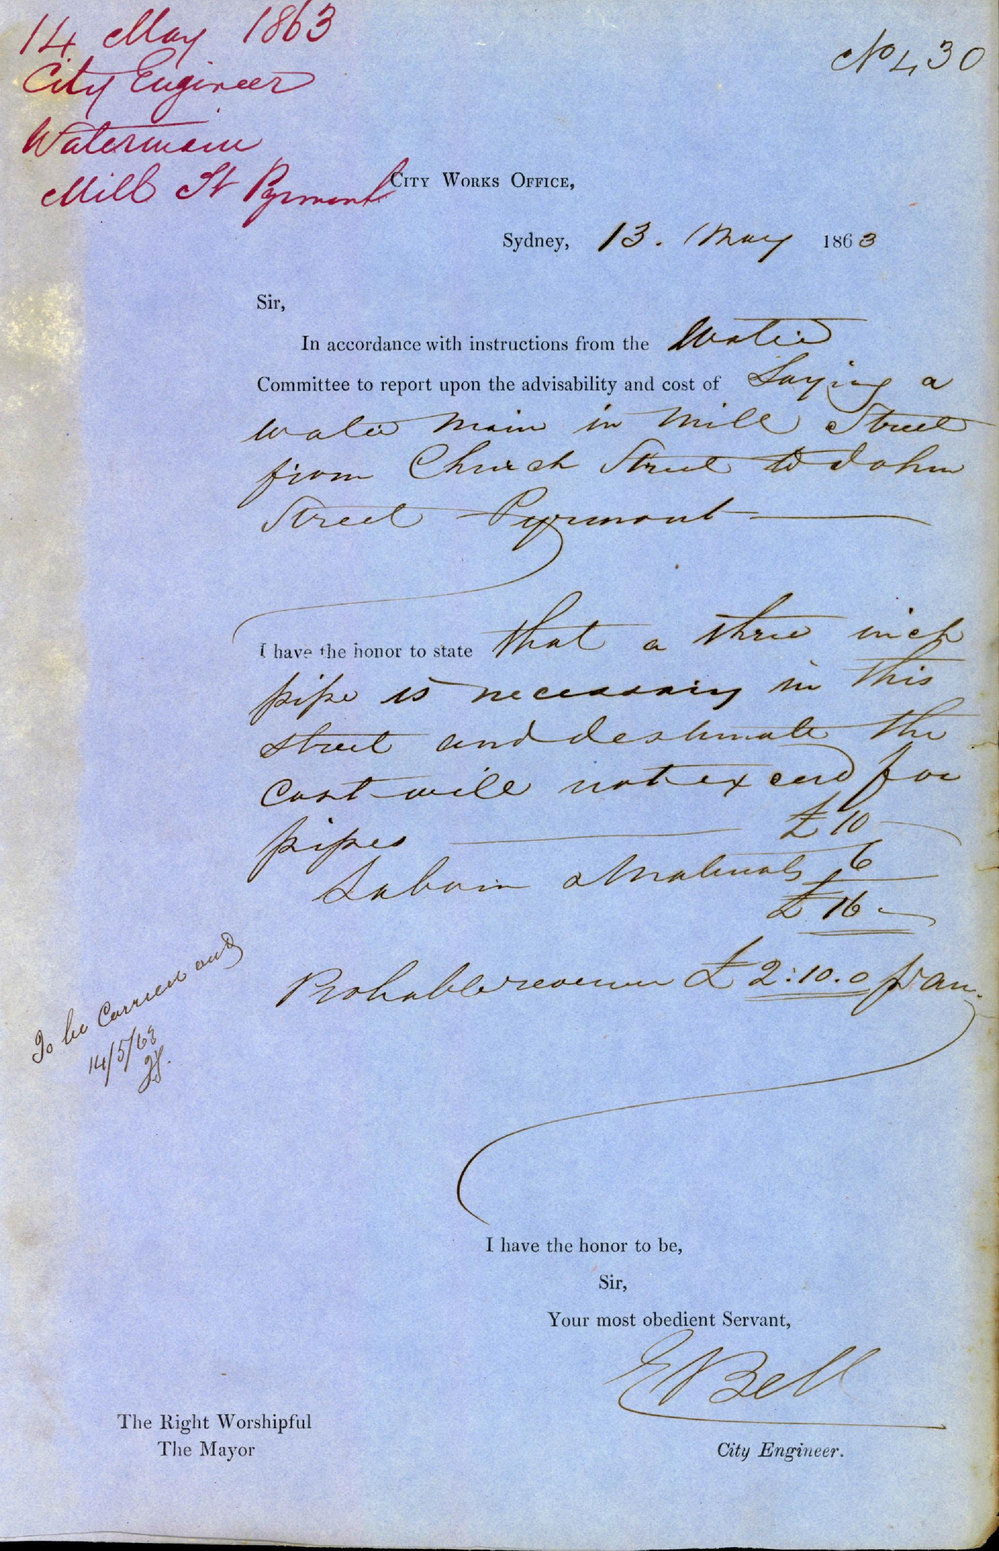 14 May 1863
City Engineer
Watermain
Mill St Pyrmont
No 430
City Works Office,
Sydney, 13. May 1863
Sir,
In accordance with instructions from the Water
Committee to report upon the advisability and cost of Laying a
water main in Mill Street
from Church Street to John
Street Pyrmont
I have the honor to state that a three inch
pipe is necessary in this
street and I estimate the
cost will not exceed for
pipes £10
Labour & Materials 6
£16
Probable revenue £2:10.0 pr an.
To be Carried out
14/5/63
I have the honor to be,
Sir,
Your most obedient Servant,
E Bell
City Engineer.
The Right Worshipful
The Mayor